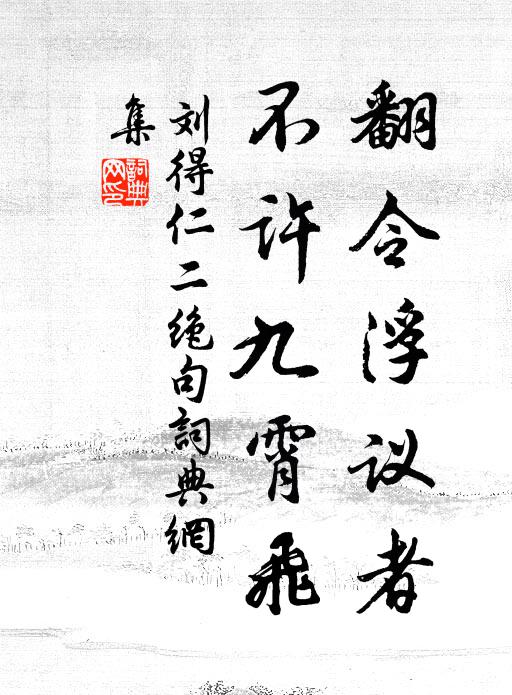 翻令浮议者
不许九霄飛
刘得仁二绝句詞典網
集
詞典网印